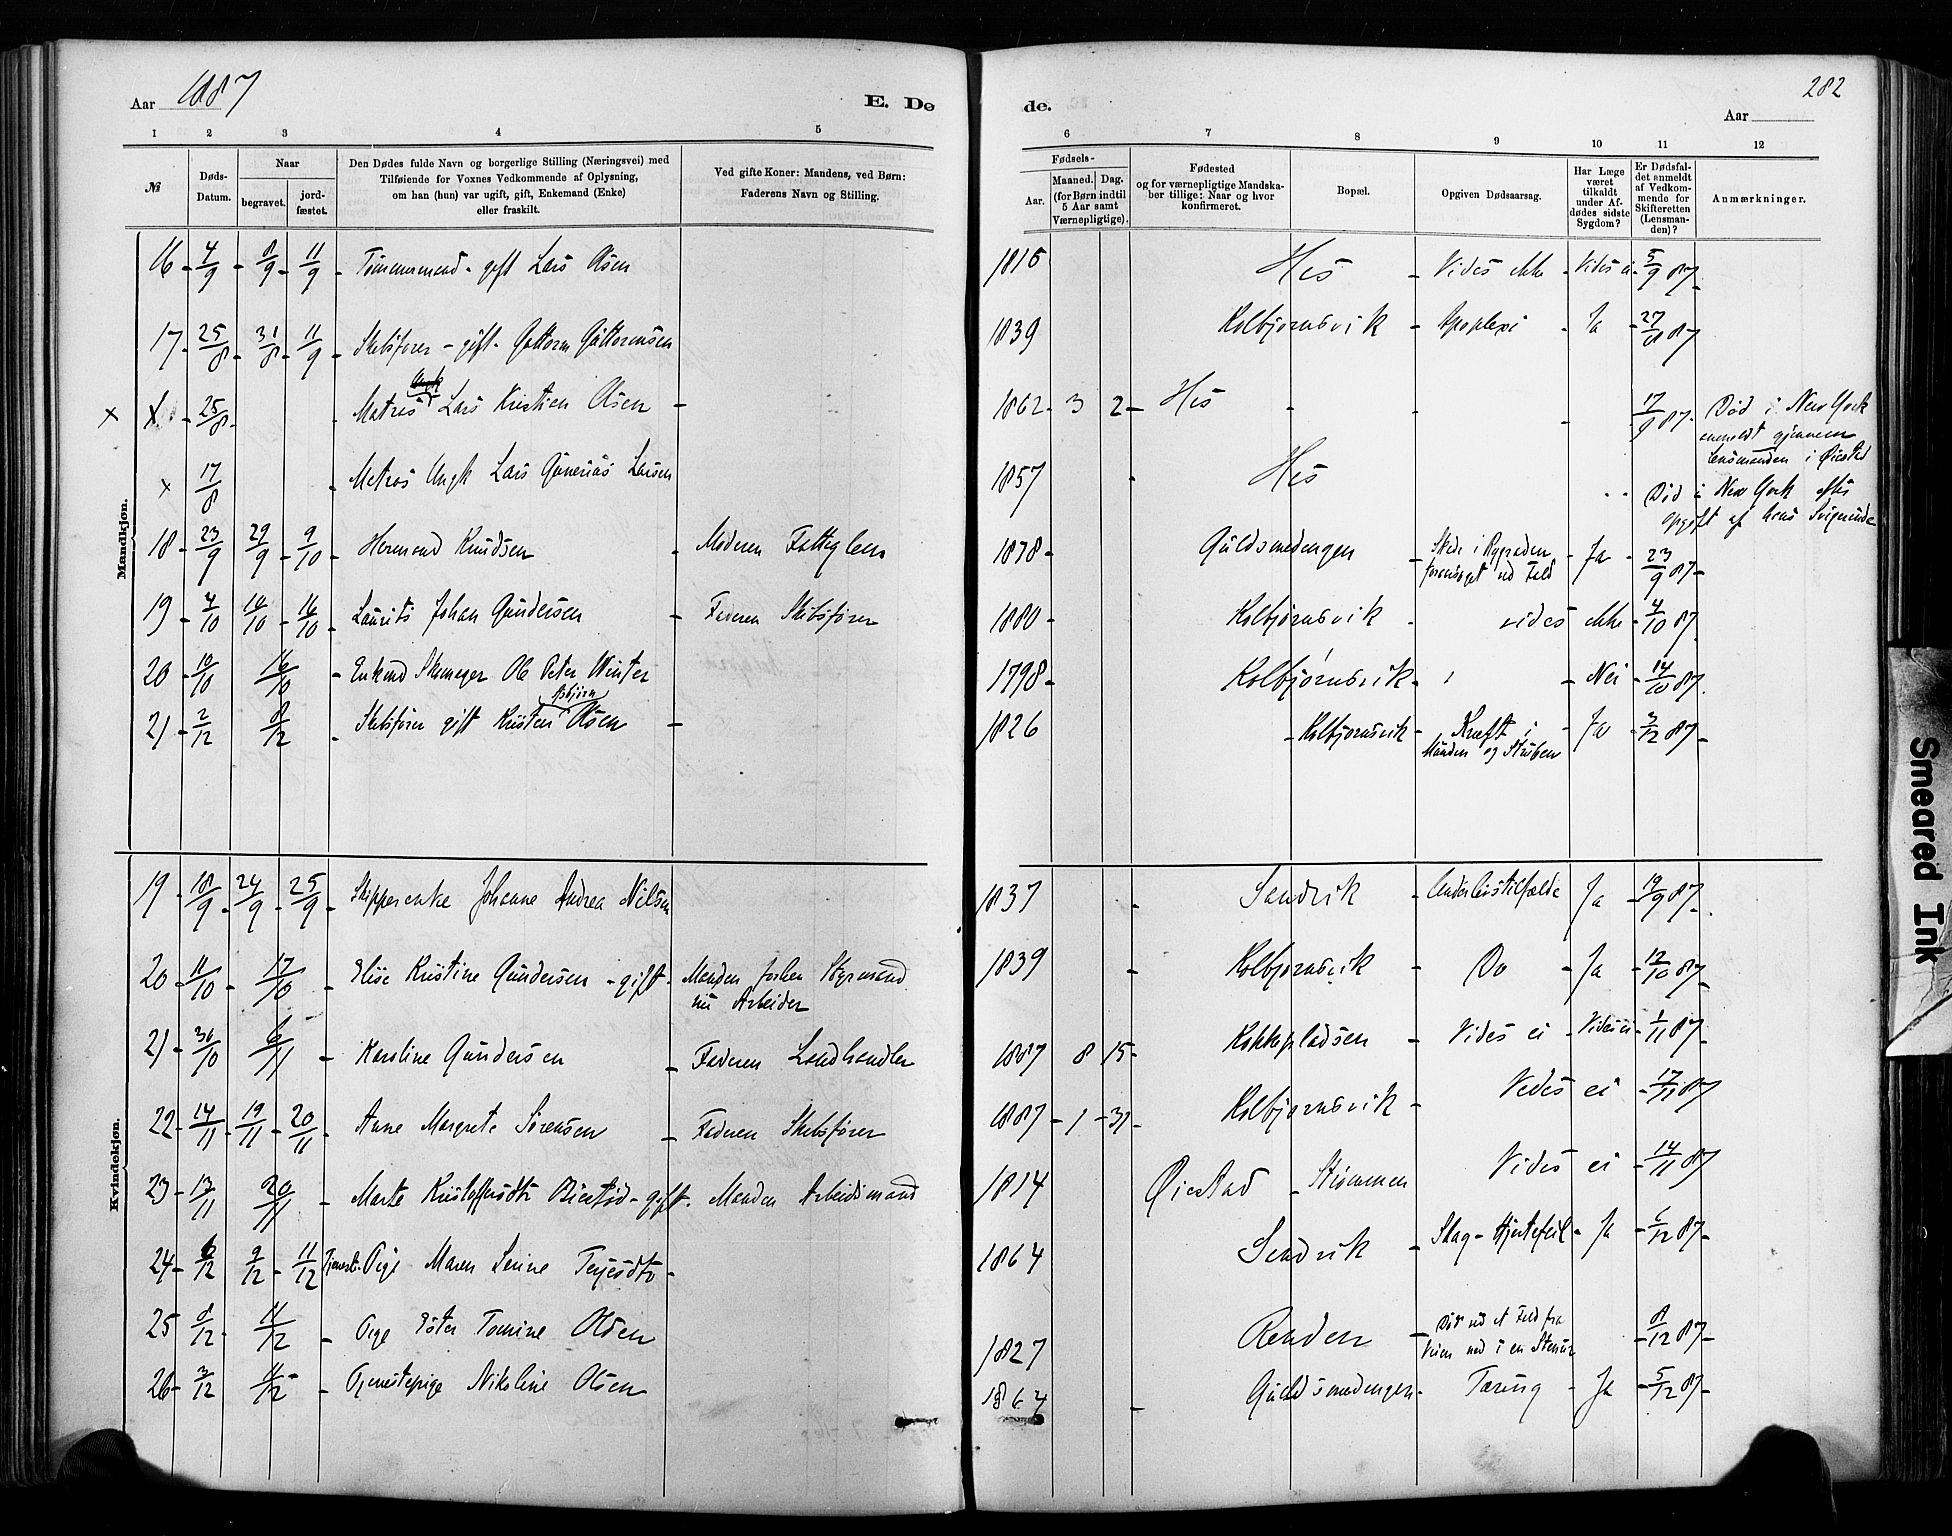 Aar 1887
E. Dø
de.
282
Aar
1 2 3 4 5 6 7 8 9 10 11 12
№
Døds-
Datum.
Naar
begravet.
jord-
fæstet.
Den Dødes fulde Navn og borgerlige Stilling (Næringsvei) med
Tilføiende for Voxnes Vedkommende af Oplysning,
om han (hun) var ugift, gift, Enkemand (Enke)
eller fraskilt.
Ved gifte Koner: Mandens, ved Børn:
Faderens Navn og Stilling.
Fødsels-
Aar.
Maaned. Dag.
(for Børn indtil
5 Aar samt
Værnepligtige).
Fødested
og for værnepligtige Mandska-
ber tillige: Naar og hvor
konfirmeret.
Bopæl.
Opgiven Dødsaarsag.
Har Læge
været
tilkaldt
under Af-
dødes sidste
Sygdom?
Er Dødsfal-
det anmeldt
af Vedkom-
mende for
Skifteretten
(Lensman-
den)?
Anmærkninger.
Mandkjøn.
16 4/9 8/9 11/9 Tømmermand - gift Lars Olsen 1816 His Vides ikke Vides ei 5/9 87
17 25/8 31/8 11/9 Skibsfører - gift - Guttorm Guttormsen 1839 Kolbjørnsvik Apoplexi Ja 27/8 87
x 25/8 Matros Lars Kristian Olsen 1862 3 2 His 17/9 87 Død i New York
anmeldt gjennem
Lensmanden i Øiestad
x 17/8 Matros Ungk Lars Larsen 1857 His Død i New York efter
opgift af hans
18 23/9 29/9 9/10 Hermand Knudsen Moderen Fattiglem 1878 Guldsmedengen Skade i Rygraden Ja 23/9 87
foraarsaget ved Fald
19 4/10 10/10 16/10 Laurits Johan Gundersen Faderen Skibsfører 1880 Kolbjørnsvik vides ikke 4/10 87
20 10/10 16/10 Enkemd Skomager Ole Peter Winter 1798 Kolbjørnsvik Nei 14/10 87
Asbjørn
21 2/12 8/12 Skibsfører gift Kristen Olsen 1826 Kolbjørnsvik Kræft i Ja 3/12 87
Munden og Struben
Kvindekjøn.
19 18/9 24/9 25/9 Skipperenke Johanne Andrea Nilsen 1837 Sandvik Underlivstilfælde Ja 19/9 87
20 11/10 17/10 Elise Kristine Gundersen - gift Manden forhen Styrmand 1839 Kolbjørnsvik Do Ja 12/10 87
nu Arbeider
21 30/10 6/11 Karoline Gundersen Faderen Landhandler 1887 8 15 Kokkepladsen Vides ei Vides ei 1/11 87
22 14/11 19/11 20/11 Anne Margrete Sørensen Faderen Skibsfører 1887 1 31 Kolbjørnsvik Vides ei 17/11 87
23 13/11 20/11 Marte Kristoffersdtr - gift Manden Arbeidsmand 1814 Øiestad Strømmen Vides ei 14/11 87
24 6/12 9/12 11/12 Tjeneste Pige Maren Serine Terjesdtr 1864 Sandvik Slag - Hjertefeil Ja 6/12 87
25 8/12 11/12 Pige Ester Tomine Olsen 1827 Renden Død ved et Fald fra 8/12 87
Veien ned i en Stenur
26 3/12 11/12 Tjenestepige Nikoline Olsen 1864 Guldsmedengen Tæring Ja 5/12 87
Smeared Ink